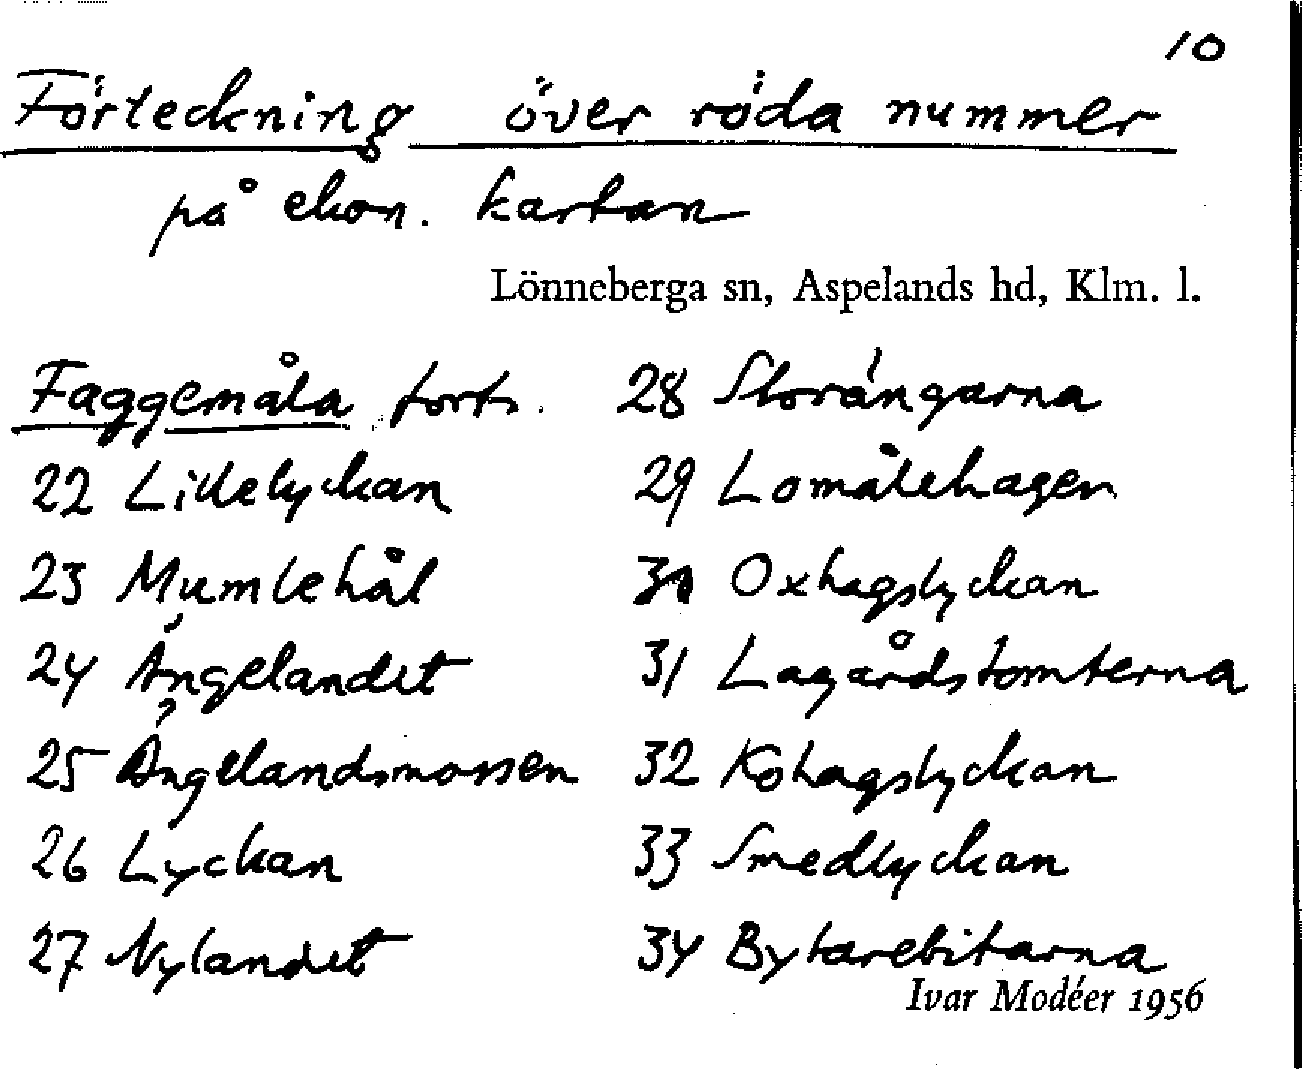 10
Förteckning över röda nummer
på ekon. kartan
Lönneberga sn, Aspelands hd, Klm. l.
Faggemåla forts.
22 Lillelyckan
23 Mumlehål
24 Ängelandet
25 Ängelandsmossen
26 Lyckan
27 Nylandet
28 Storängarna
29 Lomålehagen
30 Oxhagslyckan
31 Lagårdstomterna
32 Kohagslyckan
33 Smedlyckan
34 Bytarebitarna
Ivar Modéer 1956